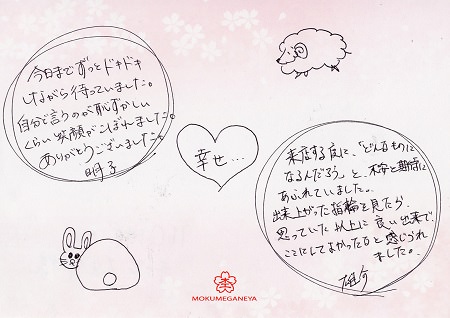 今日までずっとドキドキ
しながら待っていました。
自分で言うのが恥ずかしい
くらい笑顔がこぼれました。
ありがとうございました。
明子
幸せ…
来店する度に、「どんなものに
なるんだろう」と、不安と期待に
あふれていました。
出来上がった指輪を見たら
思っていた以上に良い出来で
ここにしてよかったなと感じられ
ました。
雄介
MOKUMEGANEYA